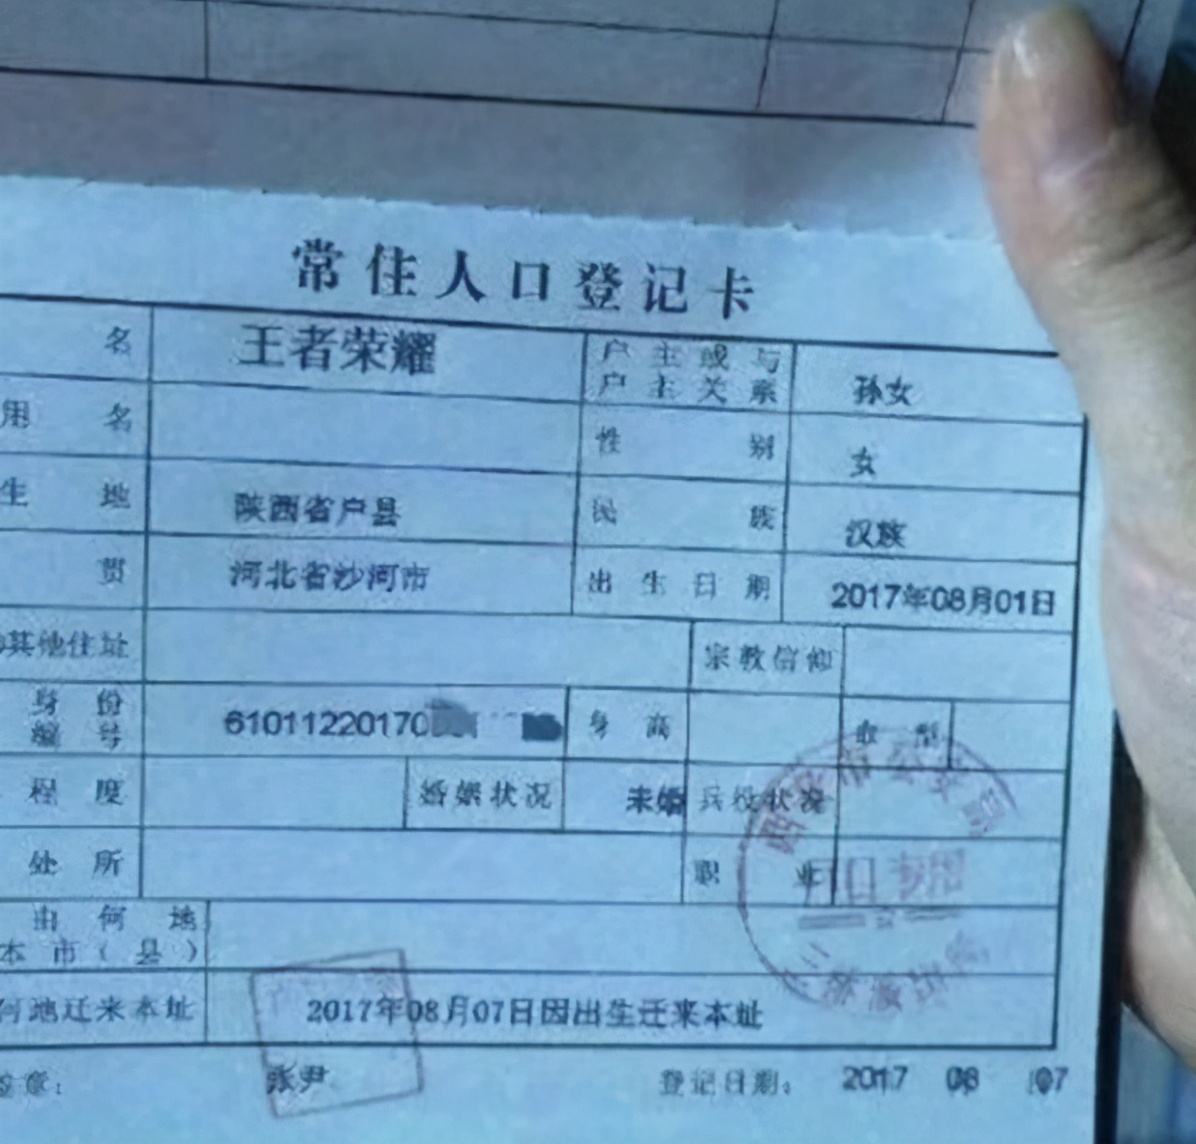 常住人口登记卡
名 王者荣耀 户主或与户主关系 孙女
用名 性别 女
生地 陕西省户县 民族 汉族
贯 河北省沙河市 出生日期 2017年08月01日
其他住址 宗教信仰
身份编号 61011220170 身高 血型
程度 婚姻状况 未婚 兵役状况
处所 职业
由何地
本市(县)
何地迁来本址 2017年08月07日因出生迁来本址
签章: 张尹 登记日期: 2017 08 07
市公安局
户口专用